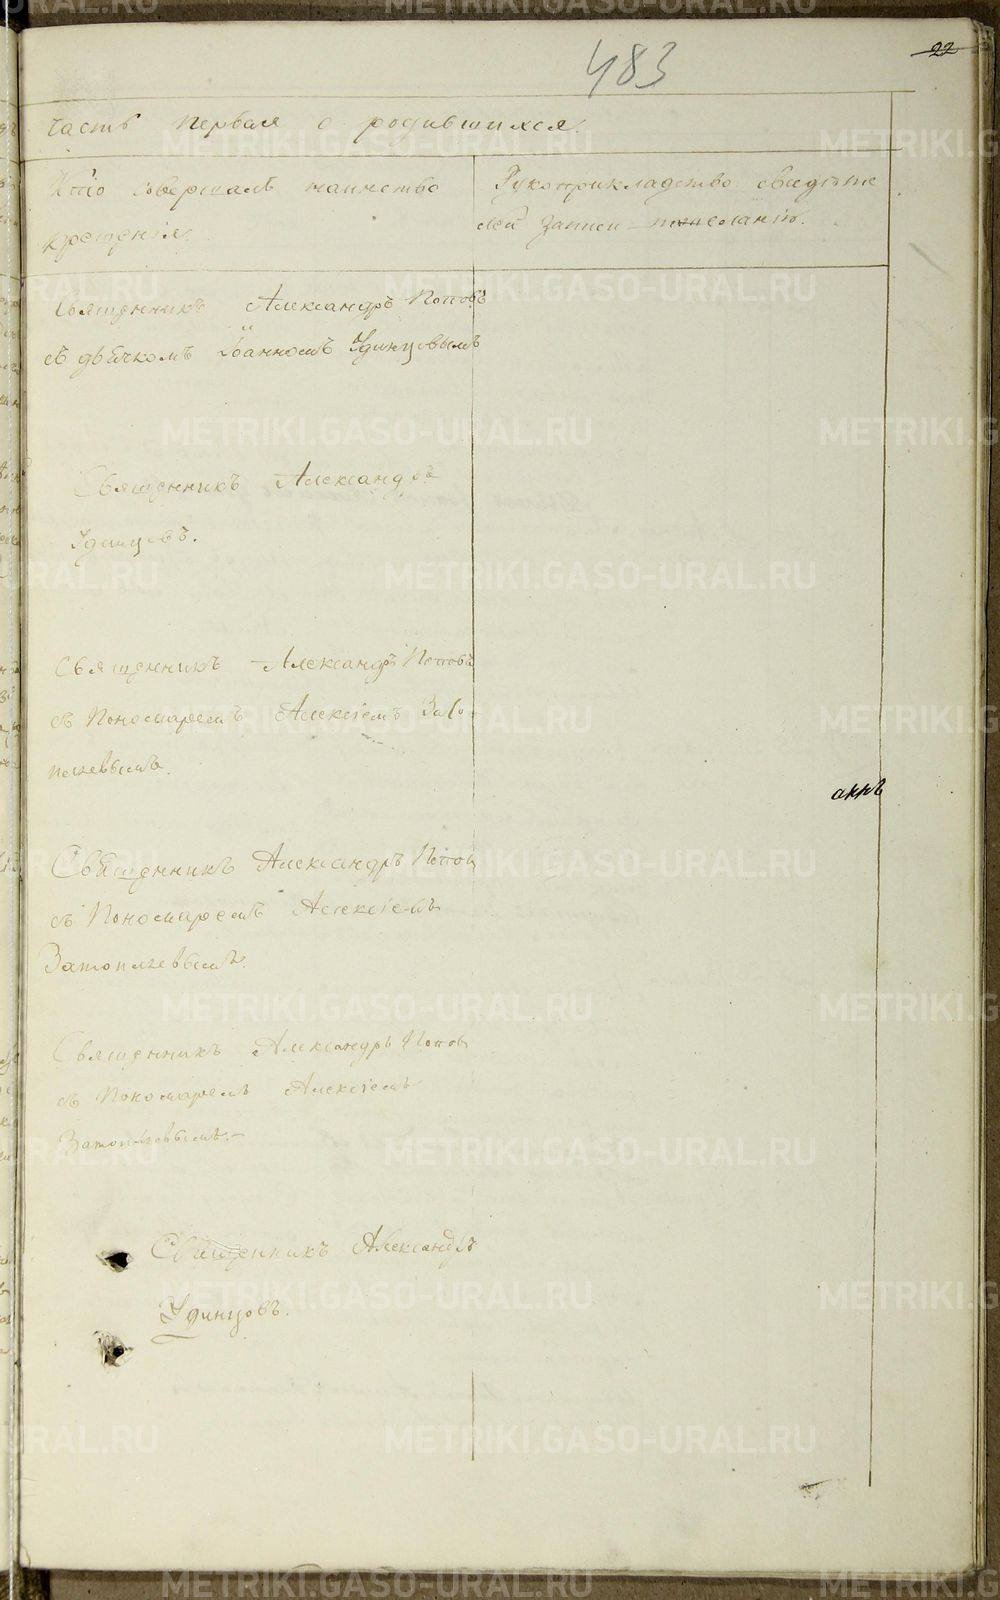 22
483
Часть первая о родившихся.
Кто совершалъ таинство
крещенія.
Рукоприкладство свидѣте
лей записи по желанію.
Священникъ Александръ Поповъ
съ дьячкомъ Іоанномъ Удинцовымъ
Священникъ Александръ
Удинцовъ.
Священникъ Александръ Поповъ
съ Пономаремъ Алексіемъ Зато-
пляевымъ.
акнъ
Священникъ Александръ Попов
съ Пономаремъ Алексіемъ
Затопляевымъ.
Священникъ Александръ Попов
съ Пономаремъ Алексіемъ
Затопляевымъ.-
Священникъ Александръ
Удинцовъ.
METRIKI.GASO-URAL.RU